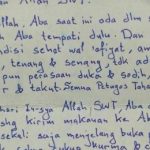 Allah SWT.
llah, Aba saat ini ada dlm
Aba tempati dulu. Dan
disi sehat wal 'afiyat, am
, tenang & senang, tdk ad
pun perasaan duka & sedih,
r & takut. Semua Petugas Taha
hari. In-sya Allah SWT, Aba
kirim makanan ke Ab
sekali saja menjelang buka
dukung